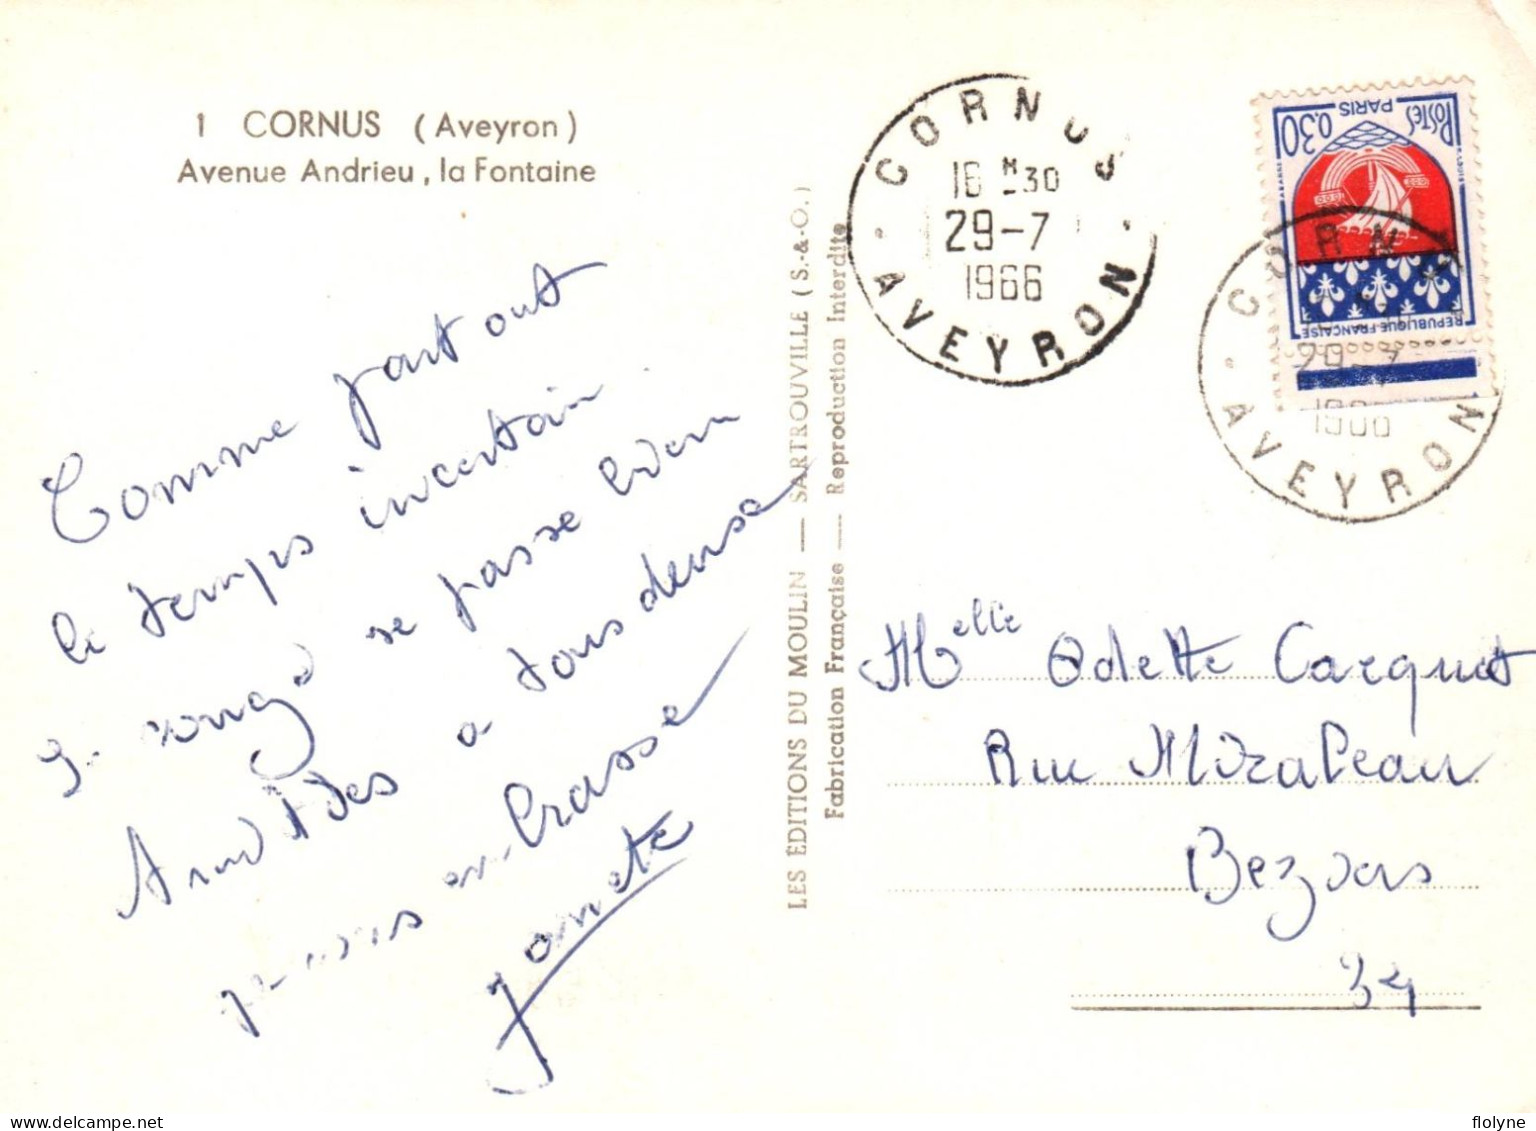 1 CORNUS (Aveyron)
Avenue Andrieu, la Fontaine
Comme partout
le temps incertain.
se passe bien
a tous deux
embrasse
Janete
LES ÉDITIONS DU MOULIN — SARTROUVILLE (S.-&-O.)
Fabrication Française — Reproduction Interdite
CORNUS
16 H 30
29-7
1966
AVEYRON
POSTES
0,30
PARIS
REPUBLIQUE FRANÇAISE
CORNUS
29-7
1966
AVEYRON
Melle Odette Carquet
Rue Mirabeau
Bezdas
34
flolyne